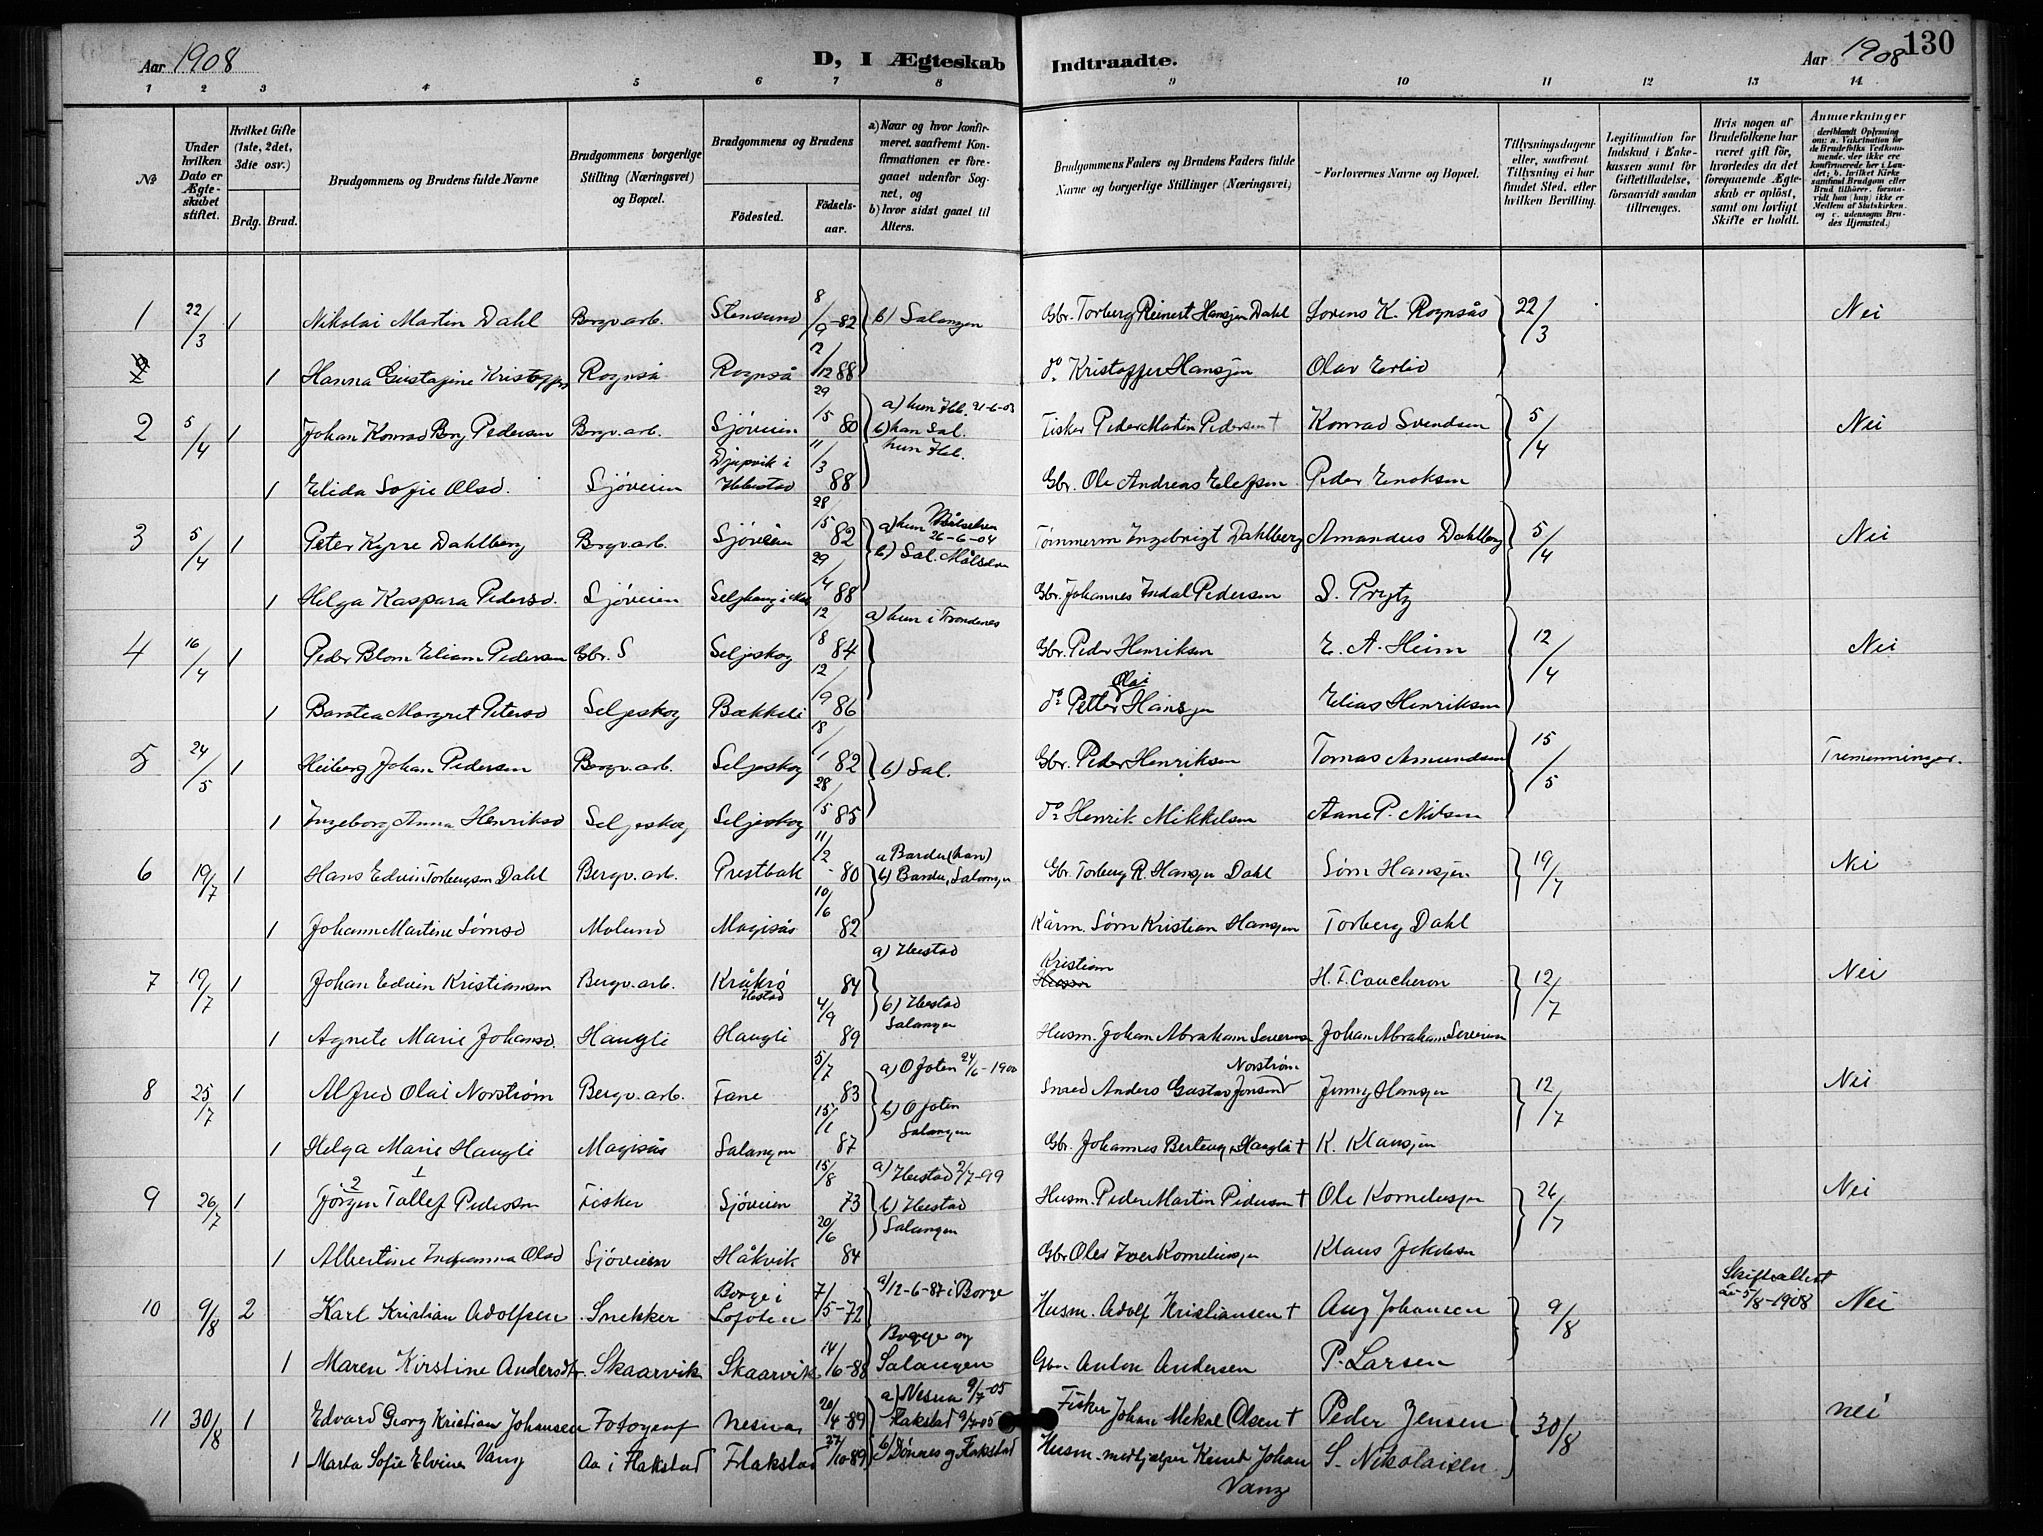 Aar 1908
D, I Ægteskab
Indtraadte.
Aar 1908
130
1 2 3 4 5 6 7 8 9 10 11 12 13 14
№
Under hvilken Dato er Ægteskabet stiftet.
Hvilket Gifte (1ste, 2det, 3die osv.)
Brdg. Brud.
Brudgommens og Brudens fulde Navne
Brudgommens borgerlige Stilling (Næringsvei) og Bopæl.
Brudgommens og Brudens
Fødested. Fødselsaar.
a) Naar og hvor konfirmeret, saafremt Konfirmationen er foregaaet udenfor Sognet, og
b) hvor sidst gaaet til Alters.
Brudgommens Faders og Brudens Faders fulde Navne og borgerlige Stillinger (Næringsvei)
Forlovernes Navne og Bopæl.
Tillysningsdagene eller, saafremt Tillysning ei har fundet Sted, efter hvilken Bevilling.
Legitimation for Indskud i Enkekassen samt for Giftetilladelse, forsaavidt saadan tiltrænges.
Hvis nogen af Brudefolkene har været gift før, hvorledes da det foregaaende Ægteskab er opløst, samt om lovligt Skifte er holdt.
Anmerkninger
(deriblandt Oplysning om: a. Vakcination for de Brudefolks Vedkommende, der ikke ere konfirmerede her i Landet; b. hvilket Kirkesamfund Brudgom eller Brud tilhører, forsaavidt han (hun) ikke er Medlem af Statskirken, og c. udensogns Brudes Hjemsted.)
1 22/3 1 Nikolai Martin Dahl Bergv.arb. Stensund 8/9-82 b) Salangen Gbr. Torberg Reinert Hansjen Dahl Lorens K. Rognsås 22/3 Nei
1 Hanna Gustafine Rognså Rognså 12/12 88 do Kristoffer Hansjen Olav
2 5/4 1 Johan Konrad Berg Pedersen Bergv.arb. Sjøveien 29/15 80 a) hun Ibb. 21-6-03 b) han Sal. hun Ibb. Fisker Peder Martin Pedersen † Konrad Svendsen 5/4 Nei
1 Elida Sofie Olsd. Sjøveien Djupvik i Ibbestad 11/3 88 Gbr. Ole Andreas Peder Enoksen
3 5/4 1 Peter Kyrre Dahlberg Bergv.arb. Sjøveien 28/15 82 a) hun Målselven 26-6-04 b) Sal. Målselven Tømmerm Ingebrigt Dahlberg Amandus Dahlberg 5/4 Nei
1 Helga Kaspara Pedersd. Sjøveien 29/4 88 Gbr. Johannes Indal Pedersen S. Prytz
4 16/4 1 Peder Blom Eliam Pedersen Gbr. S Seljeskog 12/8 84 a) hun i Trondenes Gbr. Peder Henriksen E. A. Heim 12/4 Nei
1 Margret Petersd Seljeskog Bækkeli 12/9 86 do Petter Olai Hansjen Elias Henriksen
5 24/5 1 Heiberg Johan Pedersen Bergv.arb. Seljeskog 18/1 82 b) Sal. Gbr. Peder Henriksen Tomas Amundsen 15/5 Tremenninger.
1 Ingeborg Anna Henriksd Seljeskog Seljeskog 28/5 85 do Henrik Mikkelsen Aane P. Nilsen
6 19/7 1 Hans Edvin Torbergsen Dahl Bergv.arb. Prestbak 11/2 - 80 a Bardu (han) b) Bardu, Salangen Gbr Torberg R. Hansjen Dahl Sørn Hansjen 19/7 Nei
1 Johanna Martine Sørnsd Molund Magisås 10/6 82 Kårm. Sørn Kristian Hansjen Torberg Dahl
7 19/7 1 Johan Edvin Kristiansen Bergv.arb. Kråkrø Ibestad 84 a) Ibestad b) Ibestad Salangen Kristian H. T. Caucheron 12/7 Nei
1 Agnete Marie Johansd. Haugli Haugli 4/9 89 Husm. Johan Abraham Severinsen Johan Abraham Severinsen
8 25/7 1 Alfred Olai Norstrøm Bergv.arb. Fane 5/7 83 a) Ofoten 24/6-1900 b) Ofoten Salangen Anders Gustav Jensen Norstrøm Jenny Hansjen 12/7 Nei
1 Helga Marie Haugli Magisås Salangen 15/1 87 Gbr. Johannes Haugli † K. Klausjen
9 26/7 1 Jørgen Tallef Pedersen Fisker Sjøveien 15/8 73 a) Ibestad 2/7-99 b) Ibestad Salangen Husm. Peder Martin Pedersen † Ole Korneliusjen 26/7 Nei
1 Albertine Olsd Sjøveien Håkvik 20/6 84 Gbr Ole Iver Korneliusjen Klaus Jakobsen
10 9/8 2 Karl Kristian Adolfsen Snekker Borge i Lofoten 7/5-72 a/12-6-87 i Borge Borge og Salangen Husm. Adolf Kristiansen † Aug Johansen 9/8 Skifteattest 5/8-1908 Nei
1 Maren Kirstine Andersdtr. Skaarvik Skaarvik 14/6-88 Gbr. Anton Andersen P. Larsen
11 30/8 1 Edvard Georg Kristian Johansen Fotograf Nesna 20/4-89 a) Nesna 9/7-05 Flakstad 9/7-05 Fisker Johan Mekal Olsen † Peder Jensen 30/8 nei
1 Marta Sofie Elvine Vang Aa i Flakstad Flakstad 27/10-89 b) Dønnes og Flakstad Husm. medhjælper Knut Johan Vang S. Nikolaisen